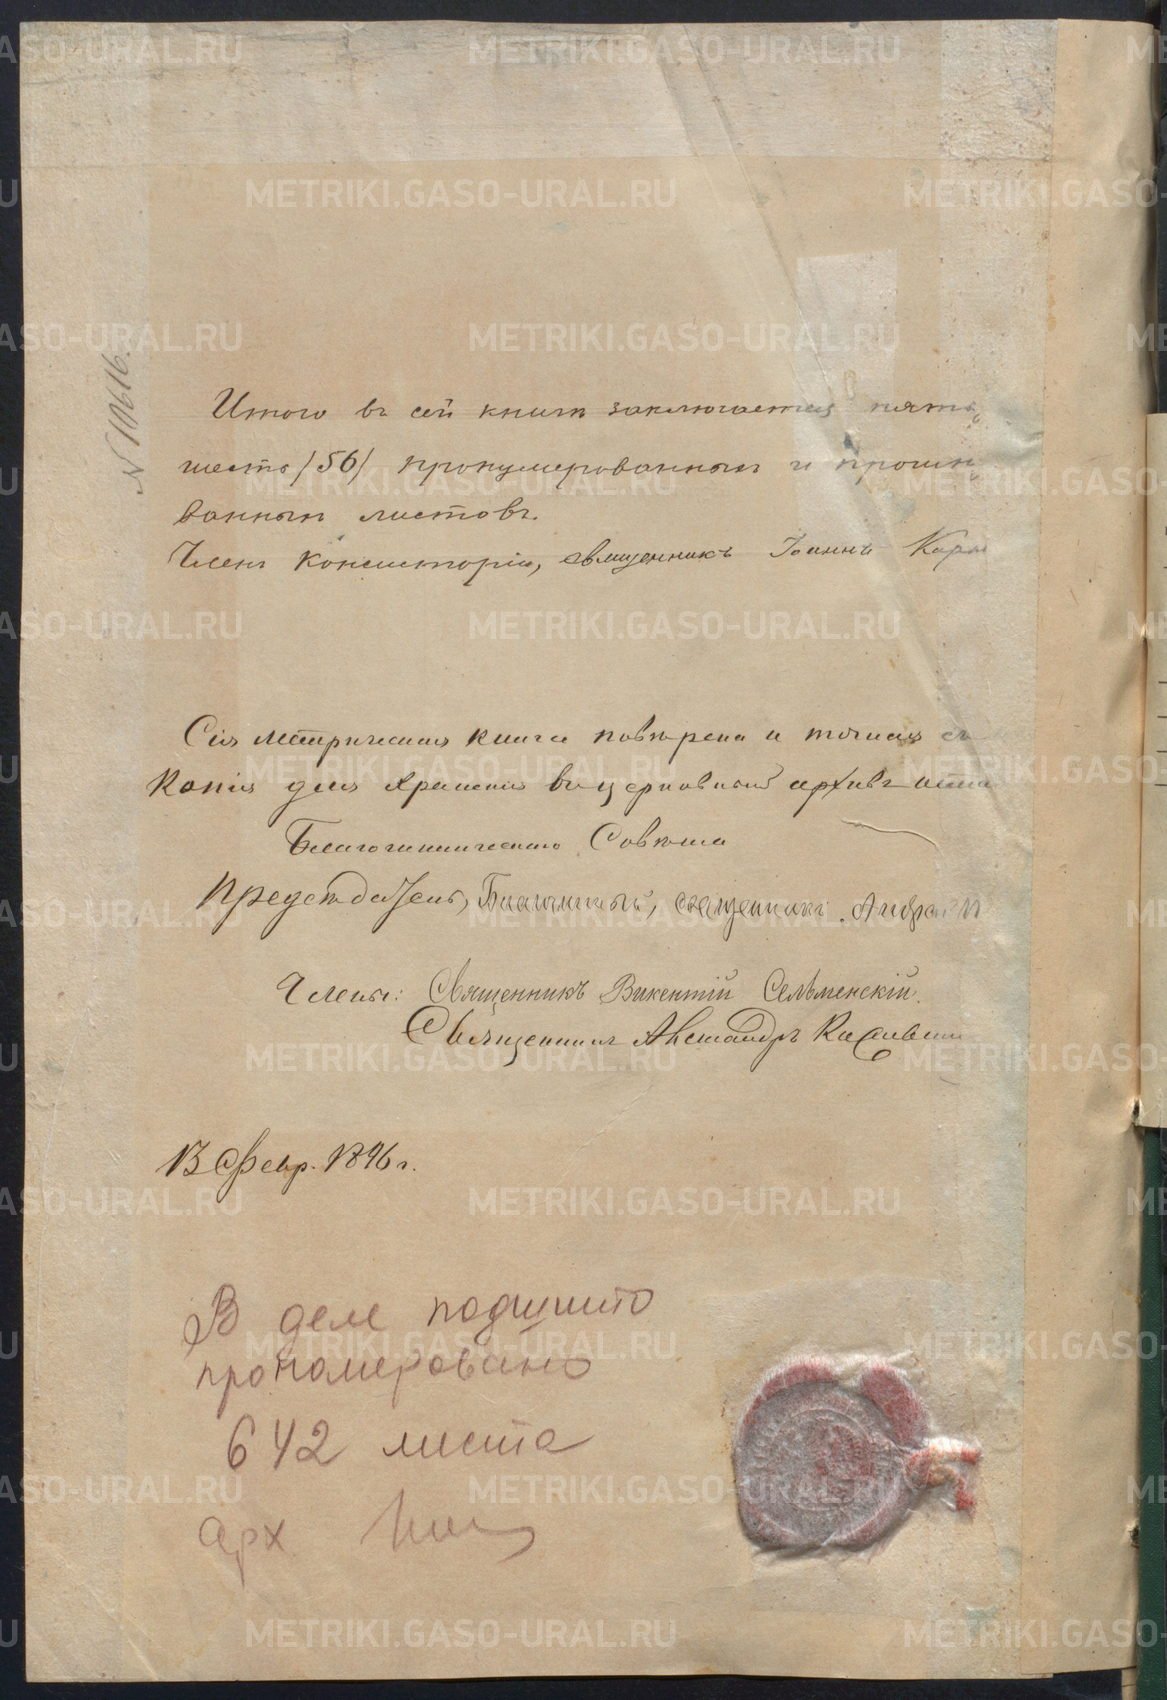 № 10616.
Итого въ сей книгѣ заключается пять
шесть /56/ пронумерованныхъ и прошну
ванныхъ листовъ.
Членъ Консисторіи, священникъ Іоаннъ
Сія метрическая книга повѣрена и точная съ
копія для храненія въ церковный архивъ
Благочинническаго Совѣта
Предсѣдатель, Благочинный, священникъ Андрей
Члены: Священникъ Викентій Сельменскій.
Священникъ Александръ
13 Февр. 1896 г.
В деле подшито
прономеровано
642 листа
Арх
METRIKI.GASO-URAL.RU